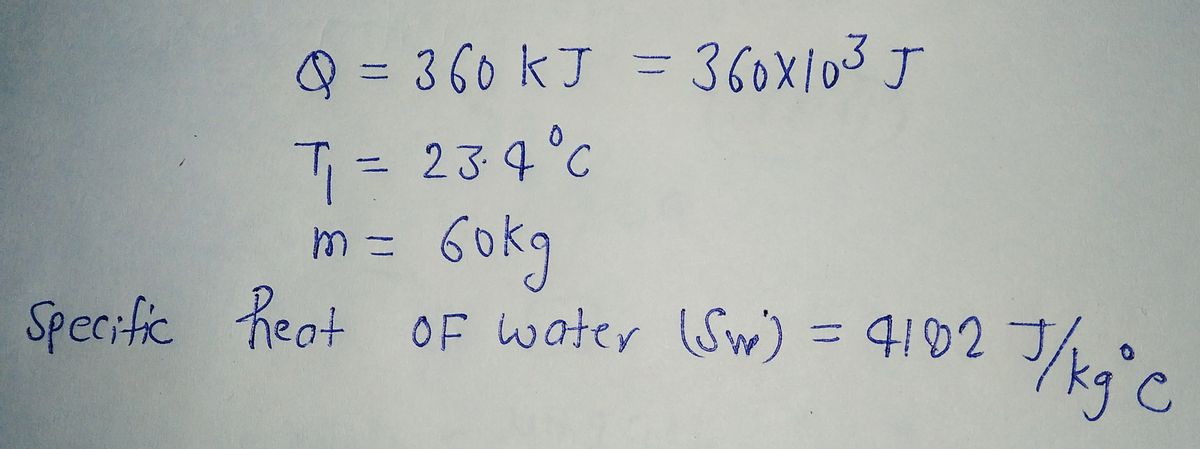 Q = 360 kJ = 360X10³ J
T₁ = 23.4°C
m = 60kg
Specific heat OF water (Sw) = 4182 J/kg°C